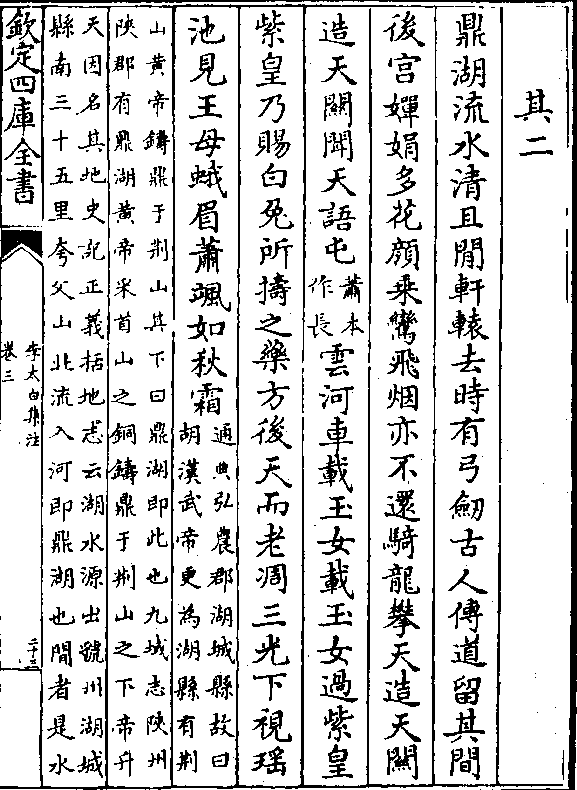 其二
鼎湖流水清且閒軒轅去時有弓劒古人傳道留其間
後宫嬋娟多花顔乗鸞飛烟亦不還騎龍攀天造天闗
造天闗聞天語屯
蕭本
作長
雲河車載玉女載玉女過紫皇
紫皇乃賜白兎所擣之藥方後天而老凋三光下視瑶
池見王母蛾眉蕭颯如秋霜
通典弘農郡湖城縣故曰
胡漢武帝更為湖縣有荆
山黄帝鑄鼎于荆山其下曰鼎湖即此也九城志陜州
陜郡有鼎湖黄帝采首山之銅鑄鼎于荆山之下帝升
天因名其地史記正義括地志云湖水源出虢州湖城
縣南三十五里夸父山北流入河即鼎湖也閒者是水
欽定四庫全書
李太白集注
卷三
二十三